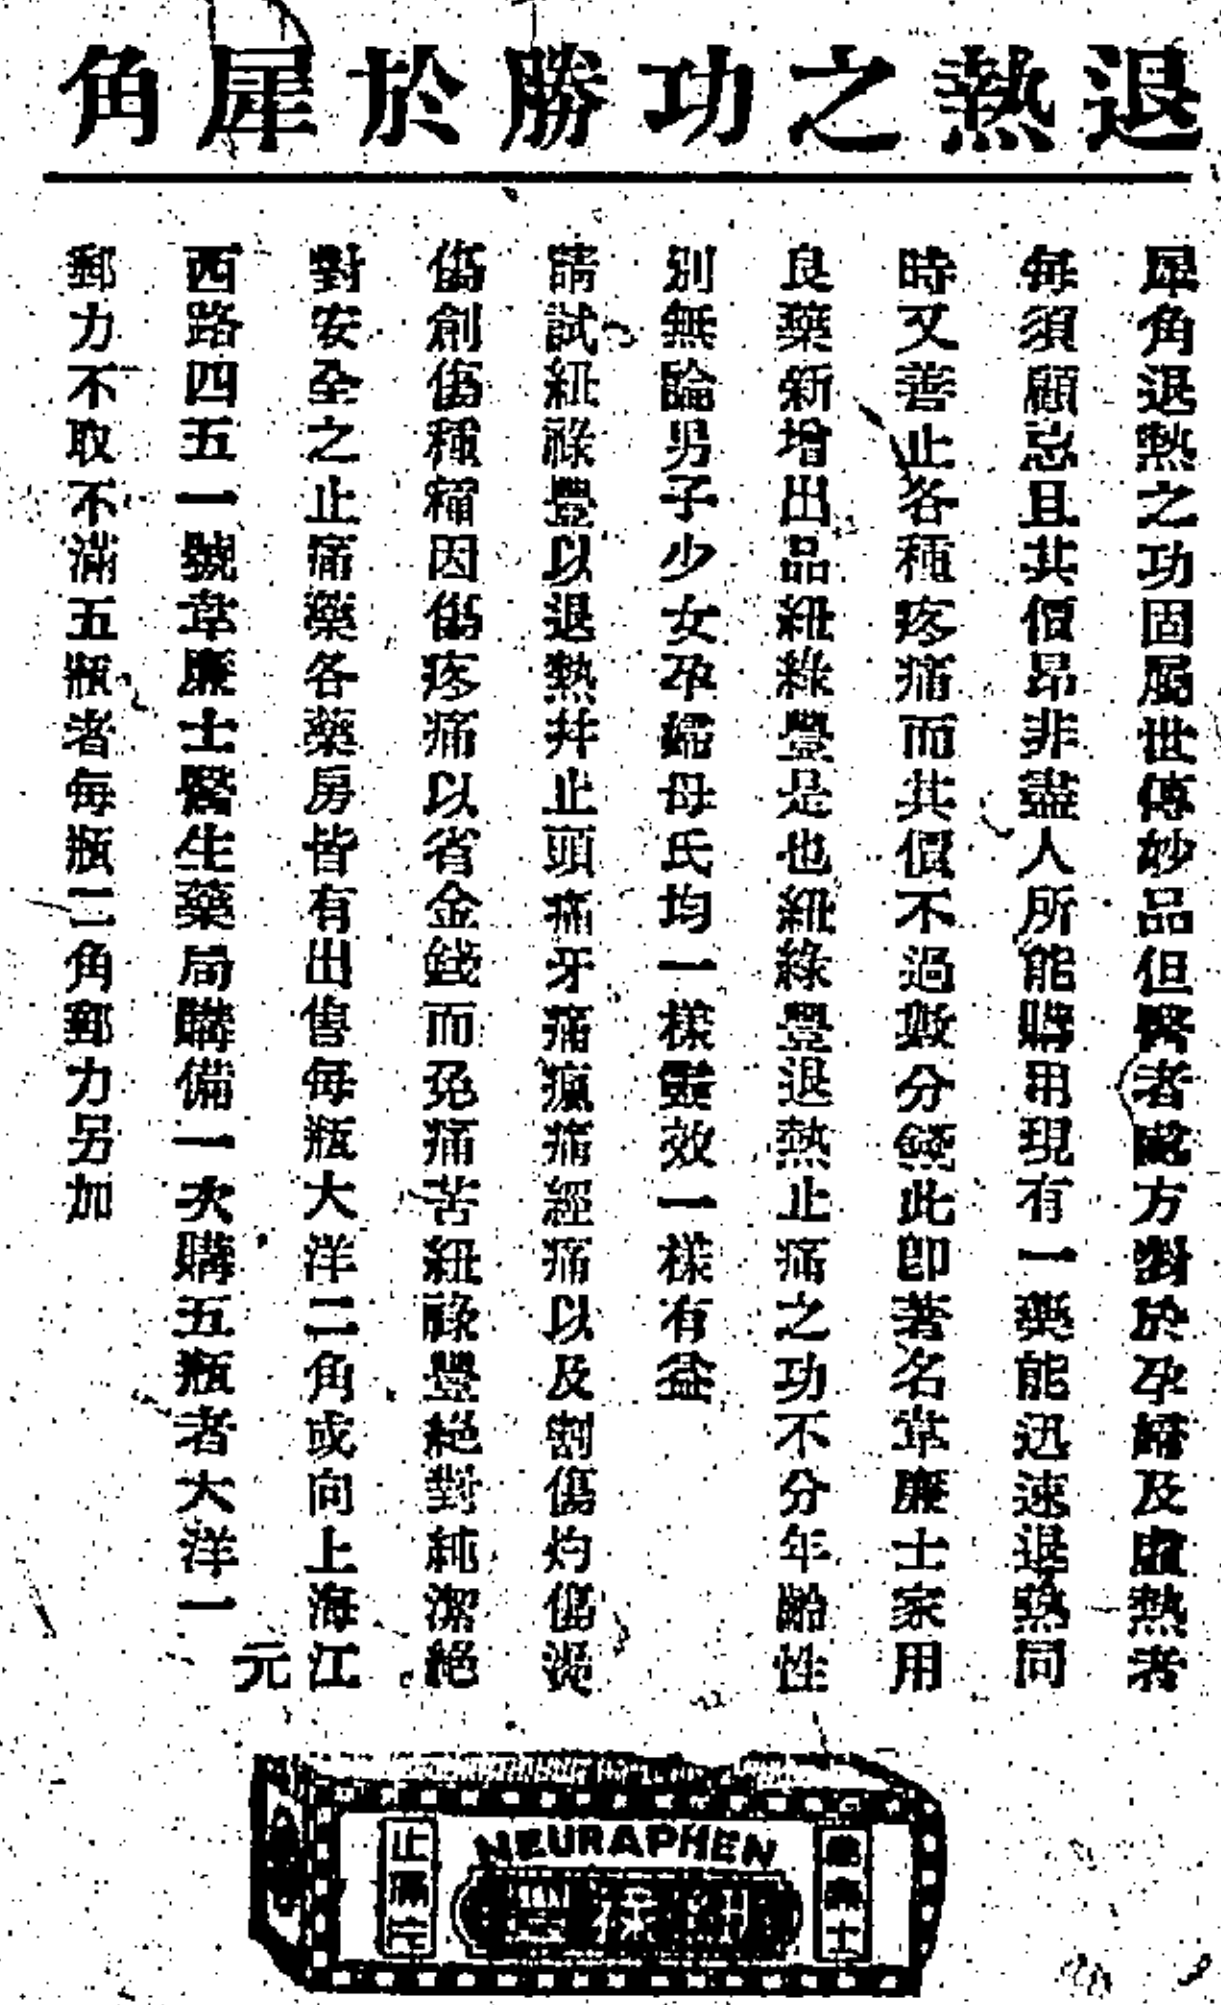 退熱之功勝於犀角
犀角退熱之功固屬世傳妙品但醫者處方對於孕婦及虛熱者
每須顧忌且其價昂非盡人所能購用現有一藥能迅速退熱同
時又善止各種疼痛而其價不過數分錢此卽著名韋廉士家用
良藥新增出品紐綠豐是也紐綠豐退熱止痛之功不分年齡性
別無論男子少女孕婦母氏均一樣靈效一樣有益
請試紐祿豐以退熱幷止頭痛牙痛瘋痛經痛以及割傷灼傷燙
傷創傷種種因傷疼痛以省金錢而免痛苦紐祿豐絕對純潔絕
對安全之止痛藥各藥房皆有出售每瓶大洋二角或向上海江
西路四五一號韋廉士醫生藥局購備一次購五瓶者大洋一元
郵力不取不滿五瓶者每瓶二角郵力另加
NEURAPHEN
韋廉士
紐祿豐
止痛片